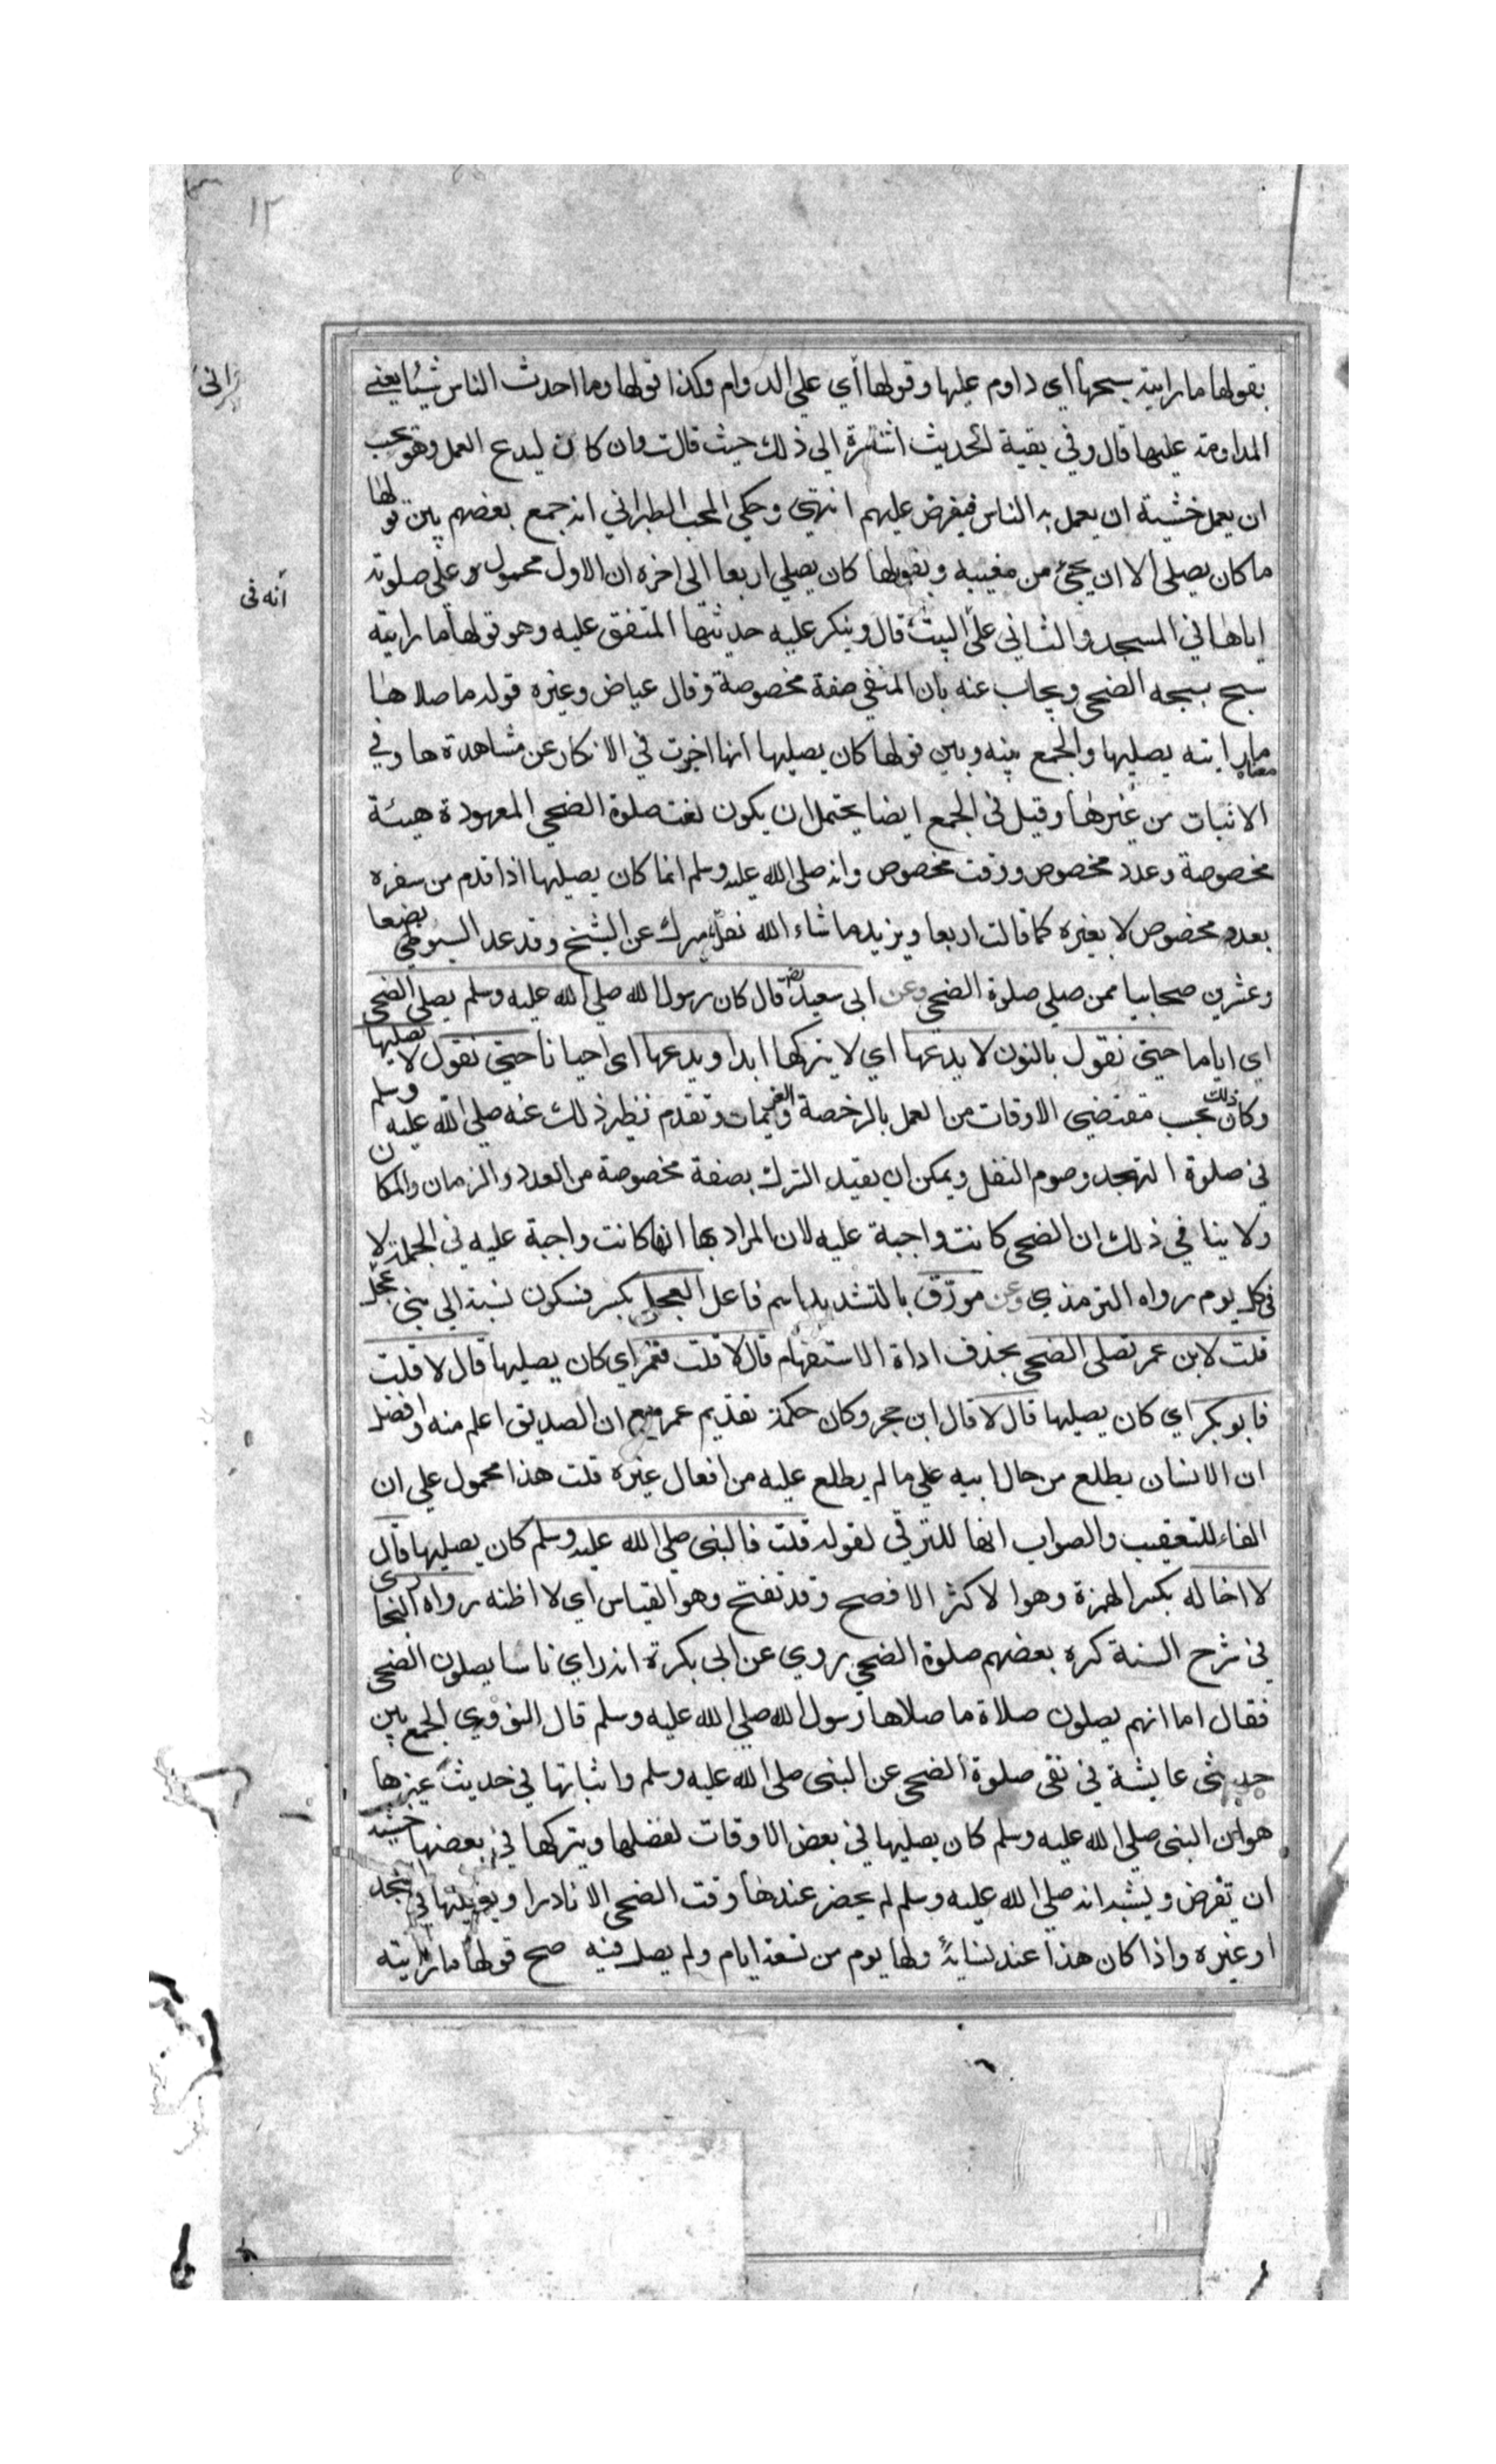 ١٢
بقولها ما رايته سبحها اي داوم عليها وقولها أي علي الدوام وكذا قولها وما احدث الناس شيئا يعني
المداومة عليها قال وفي بقية الحديث اشارة الي ذلك حيث قالت وان كان ليدع العمل وهو يحب
ان يعمل خشية ان يعمل به الناس فيفرض عليهم انتهي وحكي المحب الطبراني انه جمع بعضهم بين قولها
ما كان يصلي الا ان يجئ من مغيبه وبقولها كان يصلي اربعا الى اخره ان الاول محمول على صلوته
أنه فى
اياها في المسجد والثاني على البيت قال وينكر عليه حديثها المتفق عليه وهو قولها ما رايته
سبح سبحه الضحى ويجاب عنه بان المنفي صفة مخصوصة وقال عياض وغيره قوله ما صلاها
معناه ما رايته يصليها والجمع بينه وبين قولها كان يصليها انها اخبرت في الانكار عن مشاهدتها وفي
الاثبات من غيرها وقيل في الجمع ايضا يحتمل ان يكون نفت صلوة الضحي المعهودة هيئة
مخصوصة وعدد مخصوص ووقت مخصوص وانه صلى الله عليه وسلم انما كان يصليها اذا قدم من سفره
بعدد مخصوص لا بغيره كما قالت اربعا ويزيد ما شاء الله نقله ميرك عن الشيخ وقد عد السيوطي بضعا
وعشرين صحابيا ممن صلي صلوة الضحى وعن ابى سعيد رض قال كان رسول الله صلي الله عليه وسلم يصلي الضحى
اي اياما حتى نقول بالنون لا يدعها اي لا يتركها ابدا ويدعها اى احيانا حتى نقول لا يصليها
وكان ذلك بحسب مقتضى الاوقات من العمل بالرخصة والعزيمات وتقدم نظير ذلك عنه صلي الله عليه وسلم
في صلوة التهجد وصوم النفل ويمكن ان يقيد الترك بصفة مخصوصة من العدد والزمان والمكان
ولا ينافي ذلك ان الضحى كانت واجبة عليه لان المراد بها انها كانت واجبة عليه في الجملة لا
في كل يوم رواه الترمذي وعن مورق بالتشديد اسم فاعل العجلي بكسر فسكون نسبة الي بني عجل
قلت لابن عمر تصلى الضحى بحذف اداة الاستفهام قال لا قلت فعمر اي كان يصليها قال لا قلت
فابو بكر اي كان يصليها قال لا قال ابن حجر وكان حكمة تقديم عمر مع ان الصديق اعلم منه وافضل
ان الانسان يطلع من حال ابيه علي ما لم يطلع عليه من افعال غيره قلت هذا محمول علي ان
الفاء للتعقيب والصواب انها للترقي لقوله قلت فالنبى صلي الله عليه وسلم كان يصليها قال
لا اخاله بكسر الهمزة وهو الاكثر الافصح وقد تفتح وهو القياس اي لا اظنه رواه البخارى
في شرح السنة كره بعضهم صلوة الضحى روي عن ابى بكرة انه راي ناسا يصلون الضحى
فقال اما انهم يصلون صلاة ما صلاها رسول الله صلي الله عليه وسلم قال النووي الجمع بين
حديثى عايشة في نفى صلوة الضحى عن النبى صلي الله عليه وسلم واثباتها في حديث غيرها
هو ان النبى صلي الله عليه وسلم كان يصليها في بعض الاوقات لفضلها ويتركها في بعضها خشية
ان تفرض ويشبه انه صلي الله عليه وسلم لم يحضر عندها وقت الضحى الا نادرا ويصليها في المسجد
او غيره واذا كان هذا عند نسايه ولها يوم من تسعة ايام ولم يصل فيه صح قولها ما رايته